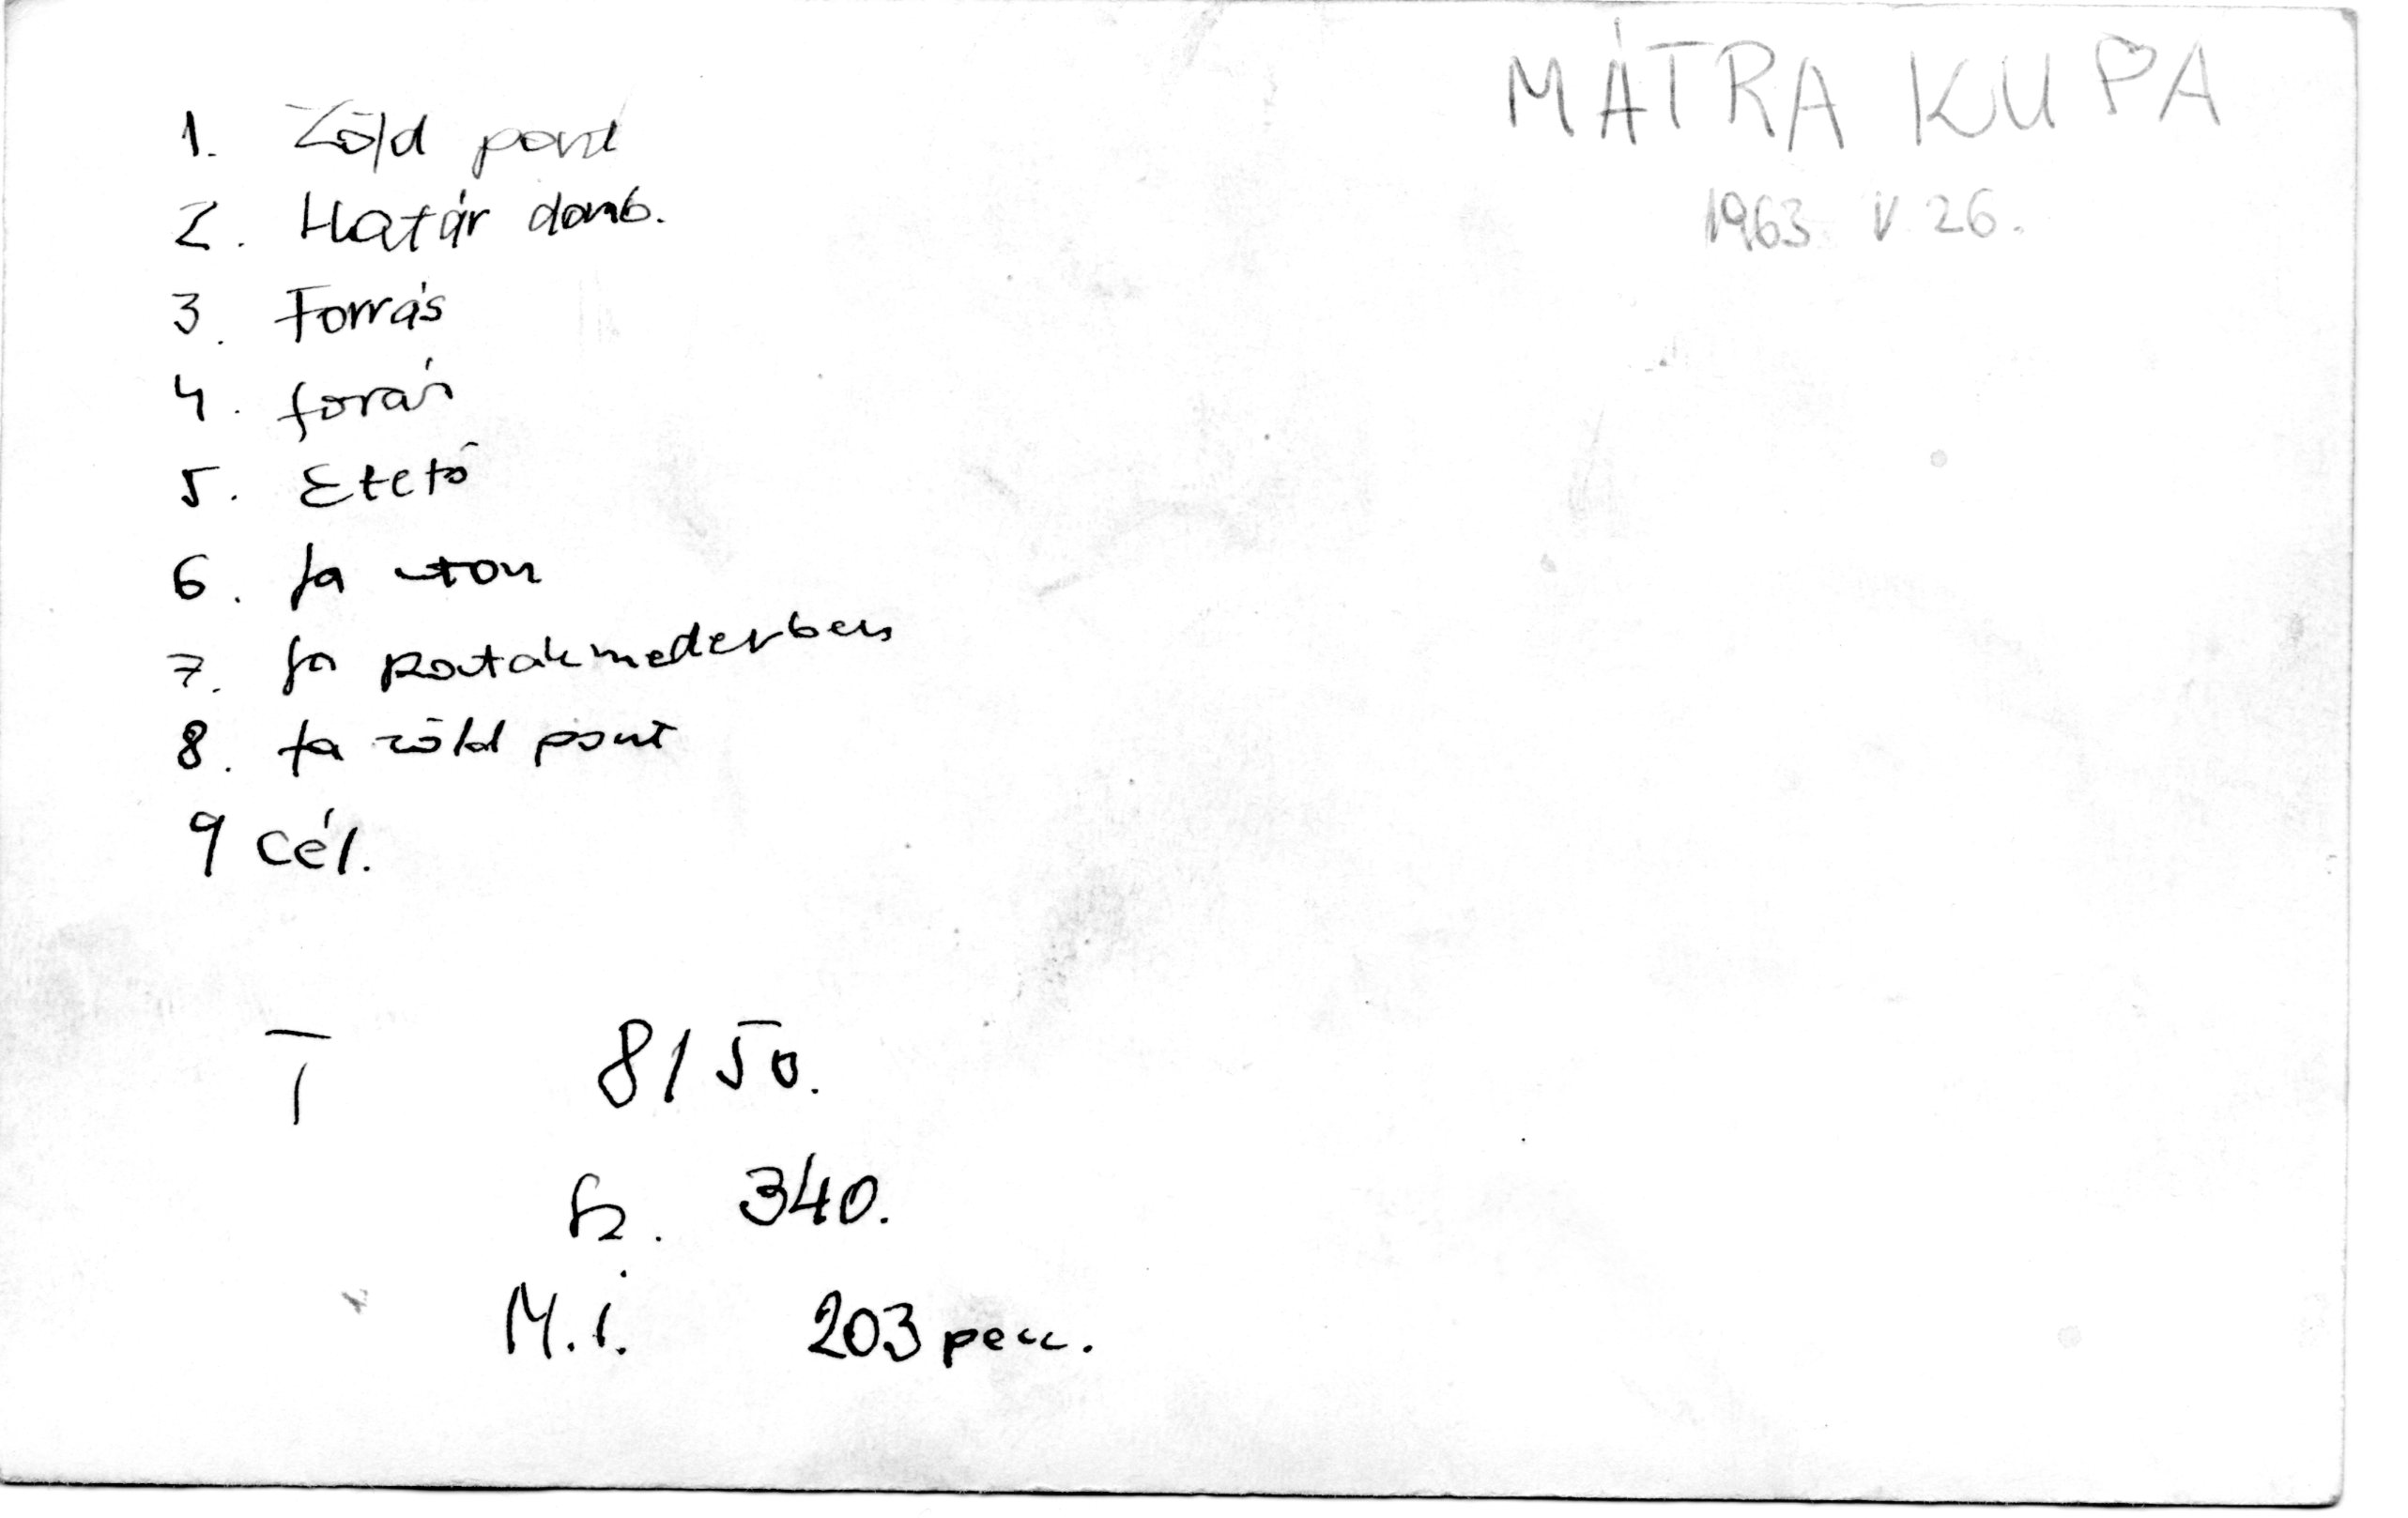 MÁTRA KUPA
1963 V 26.
1. Zöld pont
2. Határ domb.
3. Forrás
4. forás
5. Etető
6. fa uton
7. fa patakmederben
8. fa zöld pont
9 Cél.
T 8150.
h. 340.
M.i. 203 perc.